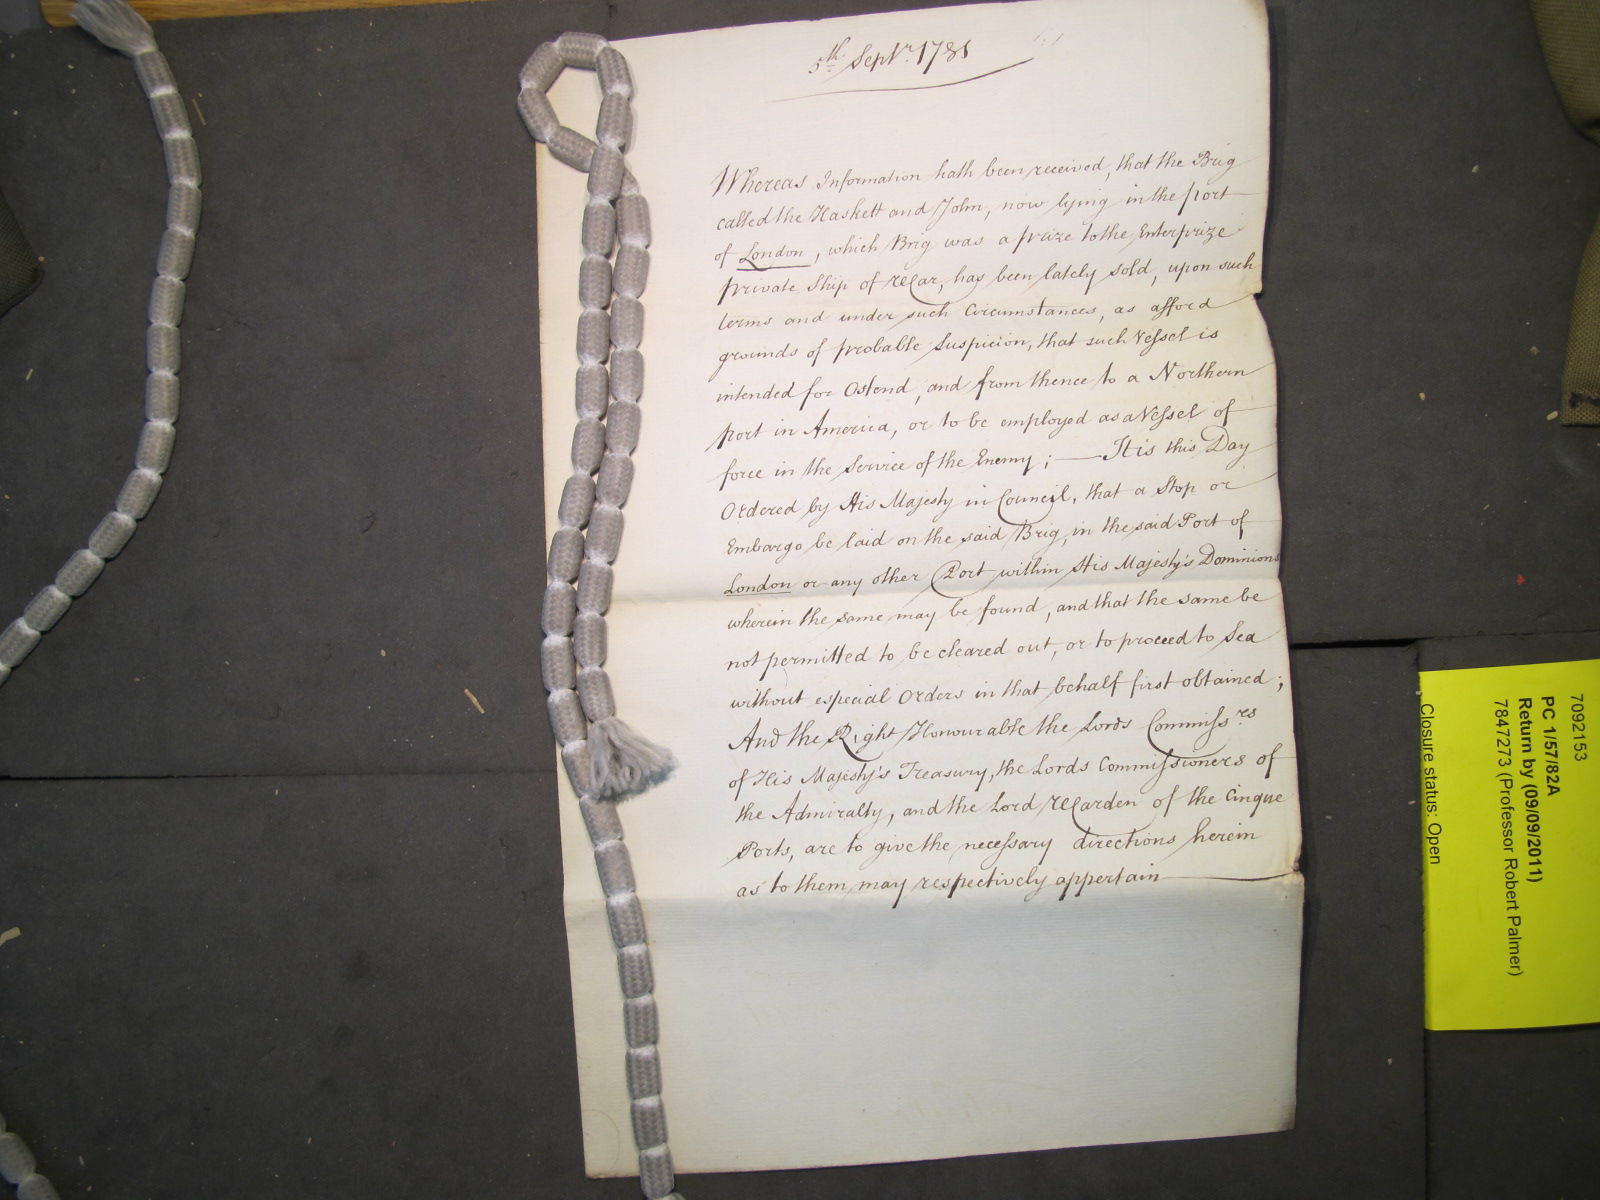 5th Septr. 1781
Whereas Information hath been received, that the Brig
called the Haskett and John, now lying in the port
of London, which Brig was a prize to the Enterprize
private Ship of War, has been lately sold, upon such
terms and under such Circumstances, as afford
grounds of probable Suspicion, that such Vessel is
intended for Ostend, and from thence to a Northern
port in America, or to be employed as a Vessel of
force in the Service of the Enemy; — It is this Day
Ordered by His Majesty in Council, that a Stop or
Embargo be laid on the said Brig, in the said Port of
London or any other Port within His Majesty's Dominions
wherein the same may be found, and that the same be
not permitted to be cleared out, or to proceed to Sea
without especial Orders in that behalf first obtained;
And the Right Honourable the Lords Commissrs
of His Majesty's Treasury, the Lords Commissioners of
the Admiralty, and the Lord Warden of the Cinque
Ports, are to give the necessary directions herein
as to them may respectively appertain
7092153
PC 1/57/82A
Return by (09/09/2011)
7847273 (Professor Robert Palmer)
Closure status: Open